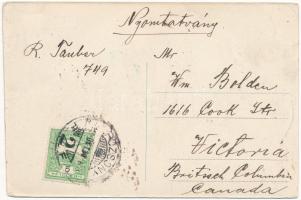 Nyomtatvány
R. Tauber
749
Mr
Wm. Bolden
1616 Cook Str
Victoria
British Columbia
Canada